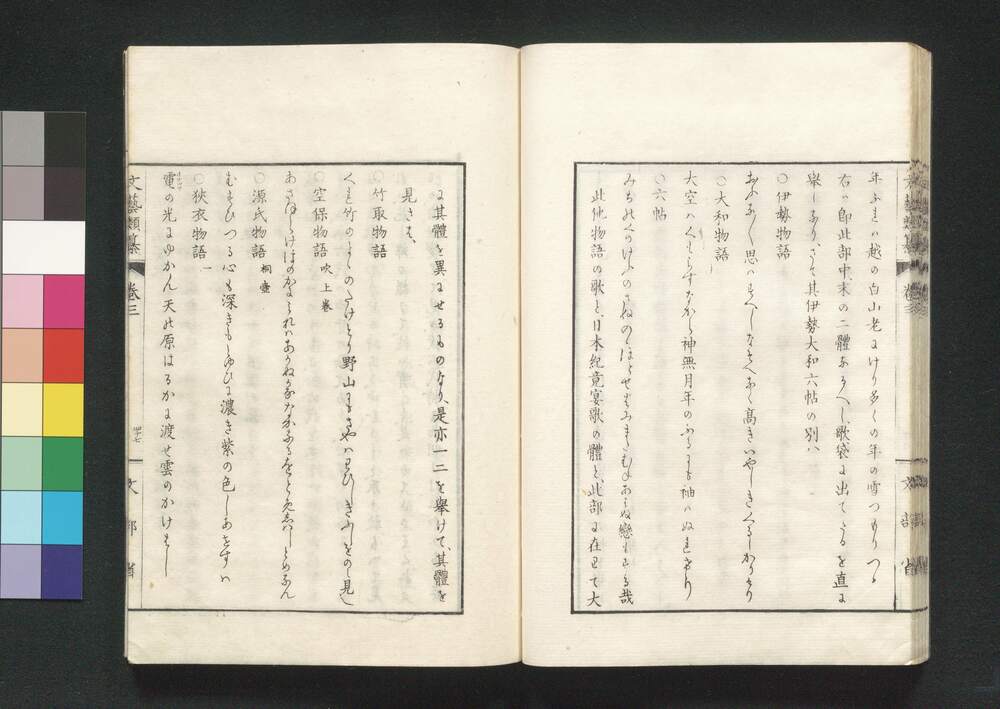 年ふれは越の白山老にけり多くの年の雪つもりつゝ
右ハ即此部中、末の二體なるへし、歌袋に出てたるを直に
擧しなり、さて其伊勢大和六帖の別ハ
○伊勢物語
あふな〳〵思ひはすへしなそへなく高きいやしきくるしかりけり
○大和物語
大空ハくもらすなから神無月年のふるにも袖ハぬれけり
○六帖
みちのくのけふのさぬのゝほとせはみまたむねあはぬ戀もする哉
此他物語の歌と、日本紀竟宴歌の體と、此部に在りて大
に其體を異にせるものなり、是亦一二を擧けて、其體を
見さは、
○竹取物語
くれ竹のよゝのたけとり野山にもさやハわひしきふしをのみ見し
○空保物語 吹上巻
○源氏物語 桐壺
むすひつる心も深きもとゆひに濃き紫の色しあせすハ
○狹衣物語 一
電の光にゆかん天の原はるかに渡せ雲のかけはし
文藝類纂 卷三
文部省